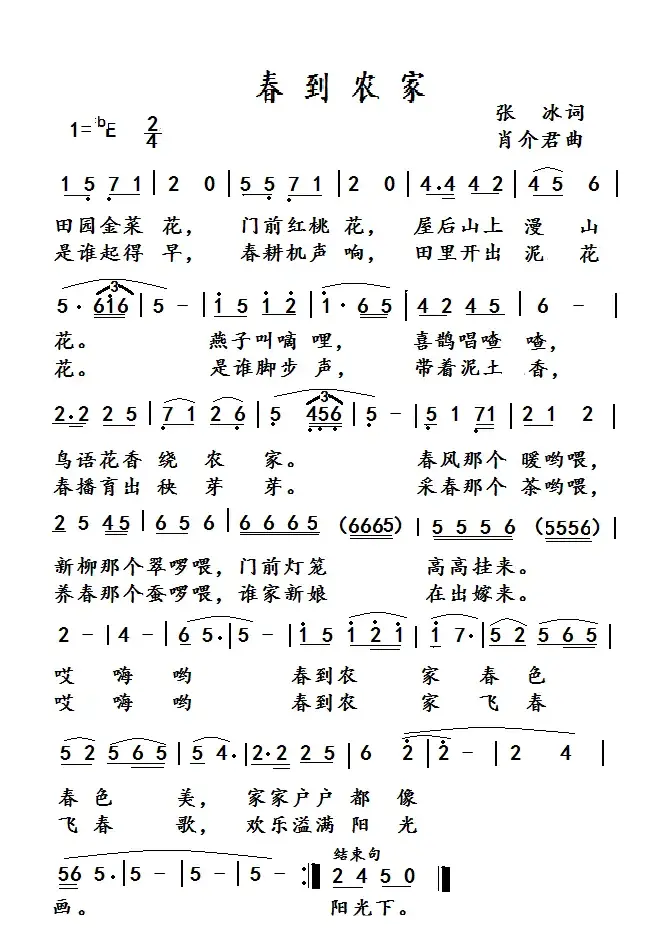 春到农家
张 冰词
1=♭E 2/4
肖介君曲
1 5 7 1 | 2 0 | 5 5 7 1 | 2 0 | 4. 4 4 2 | 4 5 6 |
田园金菜 花， 门前红桃 花， 屋后山上 漫 山
是谁起得 早， 春耕机声 响， 田里开出 泥 花
5 · 616 | 5 – | 1 5 1 2 | 1 · 6 5 | 4 2 4 5 | 6 – |
3 3
花。 燕子叫嘀 哩， 喜鹊唱喳 喳，
花。 是谁脚步 声， 带着泥土 香，
2. 2 2 5 | 7 1 2 6 | 5 456 | 5 – | 5 1 71 | 2 1 2 |
鸟语花香 绕 农 家。 春风那个 暖哟喂，
春播育出 秧 芽 芽。 采春那个 茶哟喂，
2 5 45 | 6 5 6 | 6 6 6 5 (6665) | 5 5 5 6 (5556) |
新柳那个翠啰喂，门前灯笼 高高挂来。
养春那个蚕啰喂，谁家新娘 在出嫁来。
2 – | 4 – | 6 5 · | 5 – | 1 5 1 2 1 | 1 7 · | 5 2 5 6 5 |
哎 嗨 哟 春到农 家 春 色
哎 嗨 哟 春到农 家 飞 春
5 2 5 6 5 | 5 4 · | 2 · 2 2 5 | 6 2 | 2 – | 2 4 |
春 色 美， 家家户户 都 像
飞 春 歌， 欢乐溢满 阳 光
结束句
56 5 · | 5 – | 5 – | 5 – :‖ 2 4 5 0 ‖
画。 阳光下。